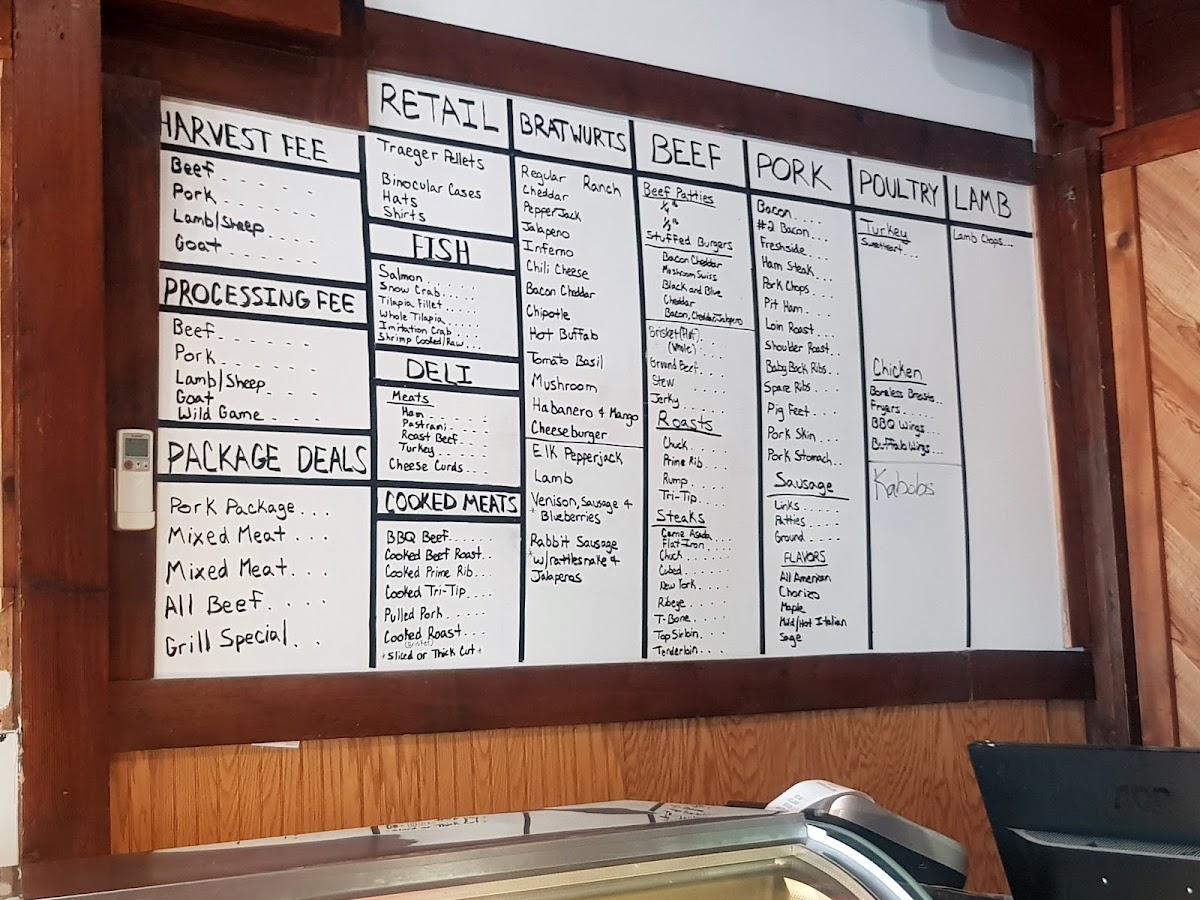 HARVEST FEE
Beef . . . . .
Pork . . . . .
Lamb/Sheep . . . .
Goat . . . . .
PROCESSING FEE
Beef . . . . . .
Pork . . . . . .
Lamb/Sheep . . .
Goat . . . . .
Wild Game . . . .
PACKAGE DEALS
Pork Package . . .
Mixed Meat . . .
Mixed Meat . . .
All Beef . . . .
Grill Special . . .
RETAIL
Traeger Pellets
Binocular Cases
Hats
Shirts
FISH
Salmon . . . . .
Snow Crab . . . . .
Tilapia Fillet . . . . .
Whole Tilapia . . . . .
Imitation Crab . . . . .
Shrimp Cooked/Raw . . .
DELI
Meats
Ham . . . . .
Pastrami . . . . .
Roast Beef . . . .
Turkey . . . . .
Cheese Curds . . .
COOKED MEATS
BBQ Beef . . . . .
Cooked Beef Roast . .
Cooked Prime Rib . . .
Cooked Tri-Tip . . . .
Pulled Pork . . . .
Cooked Roast . . . .
(Brisket)
*Sliced or Thick Cut*
BRATWURTS
Regular Ranch
Cheddar
PepperJack
Jalapeno
Inferno
Chili Cheese
Bacon Cheddar
Chipotle
Hot Buffalo
Tomato Basil
Mushroom
Habanero & Mango
Cheeseburger
Elk Pepperjack
Lamb
Venison, Sausage &
* Blueberries
Rabbit Sausage
*w/rattlesnake &
Jalapenos
BEEF
Beef Patties
1/4 lb
1/3 lb
Stuffed Burgers
Bacon Cheddar
Mushroom Swiss
Black and Blue
Cheddar
Bacon, Cheddar, Jalapeno
Brisket (Flat) . .
(Whole) . . .
Ground Beef . . . .
Stew . . . . .
Jerky . . . . .
Roasts
Chuck . . . .
Prime Rib . . .
Rump . . . .
Tri-Tip . . . .
Steaks
Carne Asada . . .
Flat Iron . . . .
Chuck . . . . .
Cubed . . . . .
New York . . . .
Ribeye . . . . .
T-Bone . . . . .
Top Sirloin . . .
Tenderloin . . . .
PORK
Bacon . . . .
#2 Bacon . . .
Freshside . . .
Ham Steak . . .
Pork Chops . . .
Pit Ham . . . .
Loin Roast . . .
Shoulder Roast . .
Baby Back Ribs . .
Spare Ribs . . .
Pig Feet . . . .
Pork Skin . . . .
Pork Stomach . .
Sausage
Links . . . . .
Patties . . . . .
Ground . . . .
FLAVORS
All American
Chorizo
Maple
Mild/Hot Italian
Sage
POULTRY
Turkey
Sweetheart . . .
Chicken
Boneless Breasts . .
Fryers . . . . .
BBQ Wings . . .
Buffalo Wings . . .
Kabobs
LAMB
Lamb Chops . . .